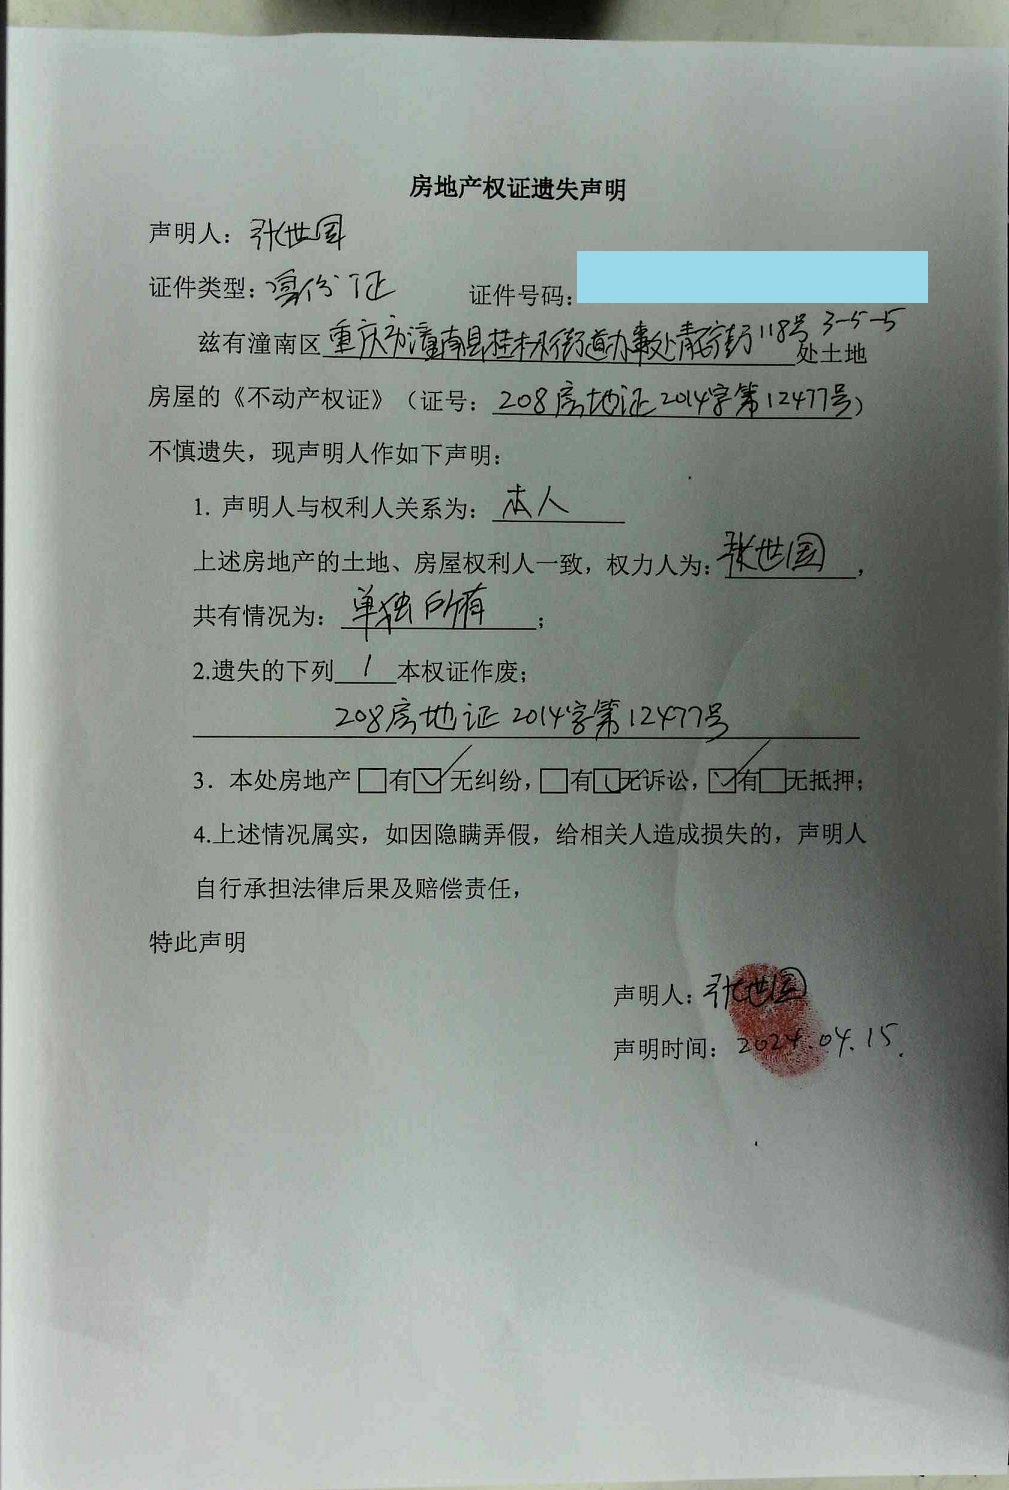 房地产权证遗失声明
声明人：张世国
证件类型：身份证 证件号码：
兹有潼南区重庆市潼南县桂林街道办事处青云街118号3-5-5处土地
房屋的《不动产权证》（证号：208房地证2014字第12477号）
不慎遗失，现声明人作如下声明：
1. 声明人与权利人关系为：本人
上述房地产的土地、房屋权利人一致，权力人为：张世国，
共有情况为：单独所有；
2.遗失的下列1本权证作废；
208房地证2014字第12477号
3．本处房地产☐有☑无纠纷，☐有☑无诉讼，☑有☐无抵押；
4.上述情况属实，如因隐瞒弄假，给相关人造成损失的，声明人
自行承担法律后果及赔偿责任，
特此声明
声明人：张世国
声明时间：2024.04.15.